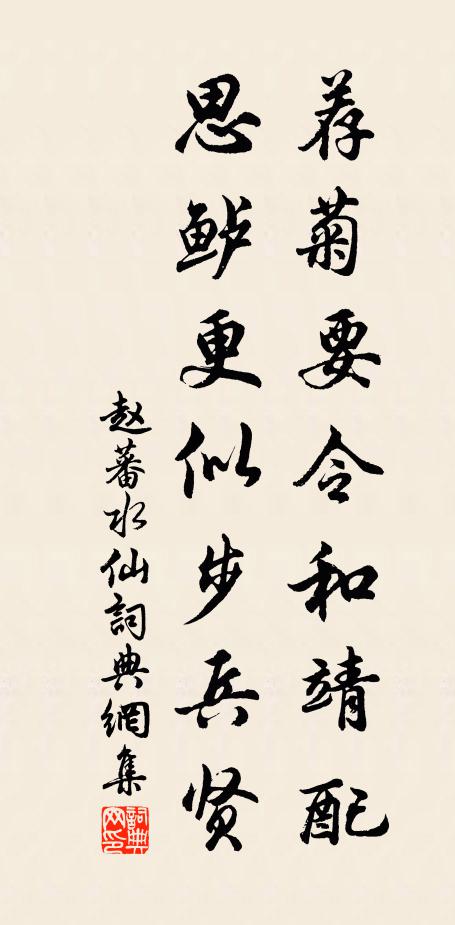 荐菊要令和靖配
思鲈更似步兵贤
赵蕃水仙詞典網集
詞典网印